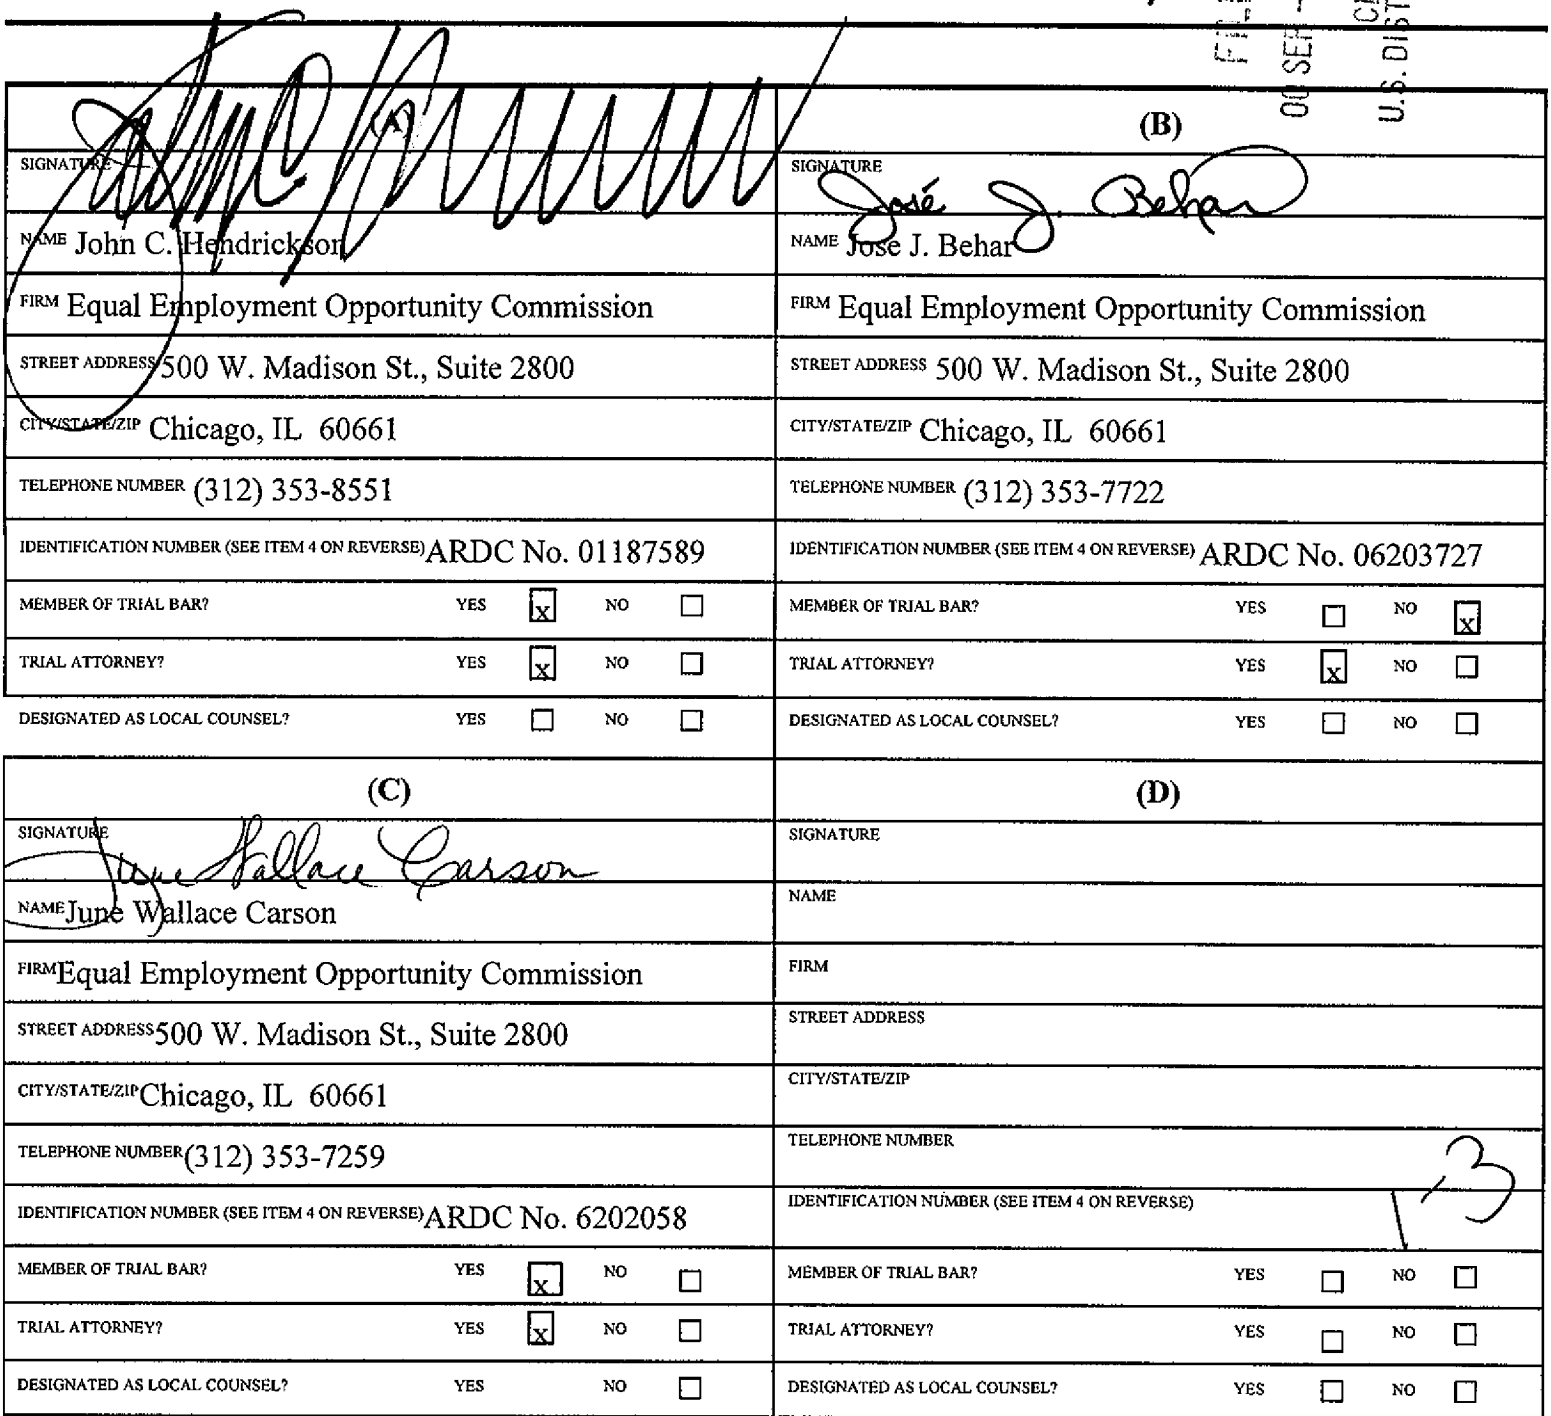 (A)
SIGNATURE
NAME John C. Hendrickson
FIRM Equal Employment Opportunity Commission
STREET ADDRESS 500 W. Madison St., Suite 2800
CITY/STATE/ZIP Chicago, IL 60661
TELEPHONE NUMBER (312) 353-8551
IDENTIFICATION NUMBER (SEE ITEM 4 ON REVERSE) ARDC No. 01187589
MEMBER OF TRIAL BAR? YES x NO
TRIAL ATTORNEY? YES x NO
DESIGNATED AS LOCAL COUNSEL? YES NO
(B)
SIGNATURE
José J. Behar
NAME Jose J. Behar
FIRM Equal Employment Opportunity Commission
STREET ADDRESS 500 W. Madison St., Suite 2800
CITY/STATE/ZIP Chicago, IL 60661
TELEPHONE NUMBER (312) 353-7722
IDENTIFICATION NUMBER (SEE ITEM 4 ON REVERSE) ARDC No. 06203727
MEMBER OF TRIAL BAR? YES NO x
TRIAL ATTORNEY? YES x NO
DESIGNATED AS LOCAL COUNSEL? YES NO
(C)
SIGNATURE
June Wallace Carson
NAME June Wallace Carson
FIRM Equal Employment Opportunity Commission
STREET ADDRESS 500 W. Madison St., Suite 2800
CITY/STATE/ZIP Chicago, IL 60661
TELEPHONE NUMBER (312) 353-7259
IDENTIFICATION NUMBER (SEE ITEM 4 ON REVERSE) ARDC No. 6202058
MEMBER OF TRIAL BAR? YES x NO
TRIAL ATTORNEY? YES x NO
DESIGNATED AS LOCAL COUNSEL? YES NO
(D)
SIGNATURE
NAME
FIRM
STREET ADDRESS
CITY/STATE/ZIP
TELEPHONE NUMBER
IDENTIFICATION NUMBER (SEE ITEM 4 ON REVERSE)
1-3
MEMBER OF TRIAL BAR? YES NO
TRIAL ATTORNEY? YES NO
DESIGNATED AS LOCAL COUNSEL? YES NO
U.S. DIST